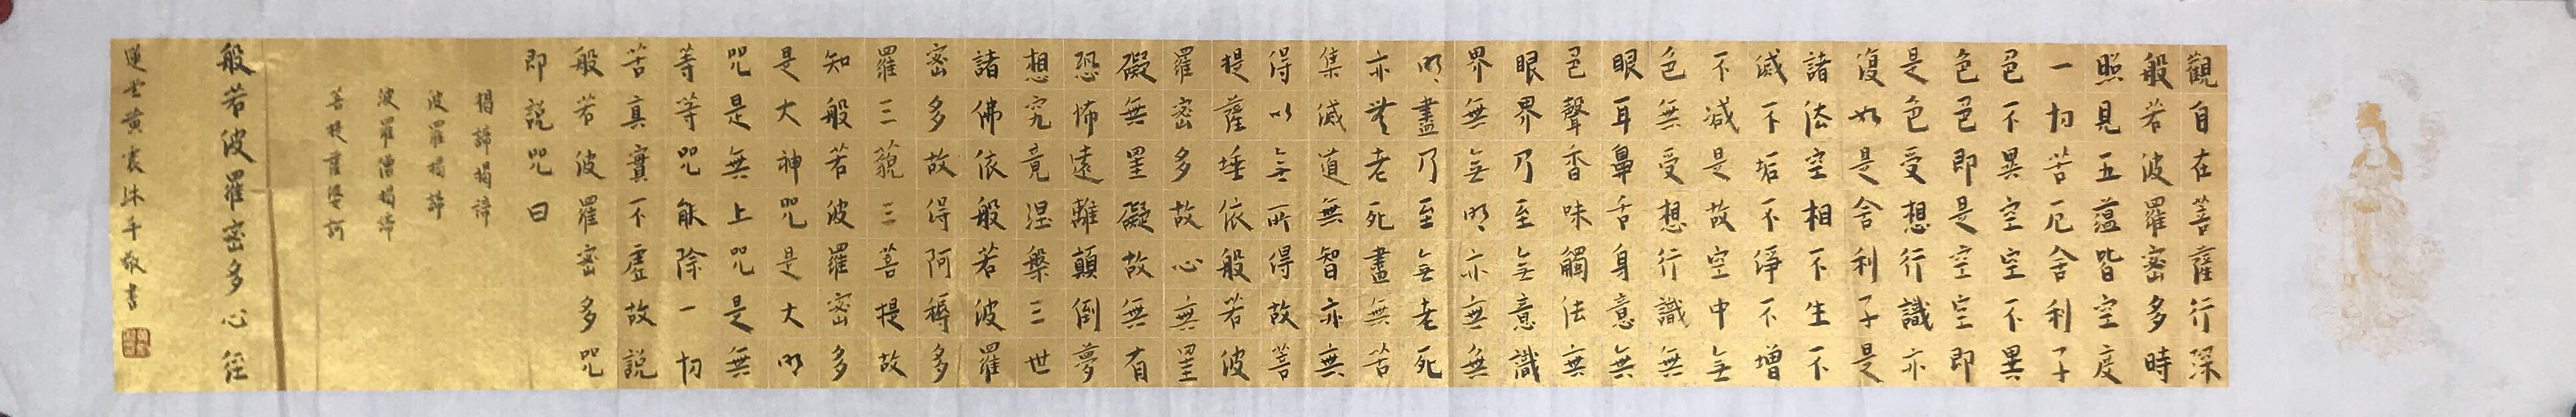 觀自在菩薩行深
般若波羅密多時
照見五蕴皆空度
一切苦厄舍利子
色不異空空不異
色色即是空空即
是色受想行識亦
復如是舍利子是
諸法空相不生不
滅不垢不淨不增
不減是故空中無
色無受想行識無
眼耳鼻舌身意無
色聲香味觸法無
眼界乃至無意識
界無無明亦無無
明盡乃至無老死
亦無老死盡無苦
集滅道無智亦無
得以無所得故菩
提薩埵依般若波
羅密多故心無罣
礙無罣礙故無有
恐怖遠離顛倒夢
想究竟涅槃三世
諸佛依般若波羅
密多故得阿耨多
羅三藐三菩提故
知般若波羅密多
是大神咒是大明
咒是無上咒是無
等等咒能除一切
苦真實不虛故説
般若波羅密多咒
即説咒曰
揭諦揭諦
波羅揭諦
波羅僧揭諦
菩提薩婆訶
般若波羅密多心経
黃震沐手敬書